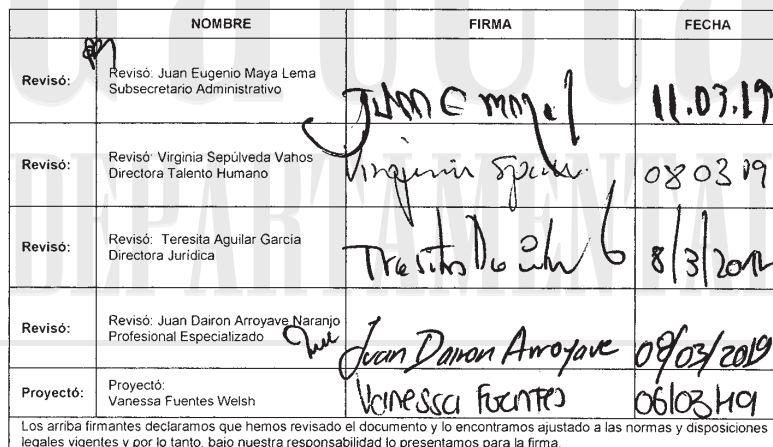 NOMBRE FIRMA FECHA
Revisó: Revisó: Juan Eugenio Maya Lema
Subsecretario Administrativo
11.03.19
Revisó: Revisó: Virginia Sepúlveda Vahos
Directora Talento Humano
Virginia 08 03 19
Revisó: Revisó: Teresita Aguilar García
Directora Jurídica
8/3/2019
Revisó: Revisó: Juan Dairon Arroyave Naranjo
Profesional Especializado
Juan Dairon Arroyave 08/03/2019
Proyectó: Proyectó:
Vanessa Fuentes Welsh
Vanessa Fuentes 06/03/19
Los arriba firmantes declaramos que hemos revisado el documento y lo encontramos ajustado a las normas y disposiciones
legales vigentes y por lo tanto, bajo nuestra responsabilidad lo presentamos para la firma.
DEPARTAMENTAL